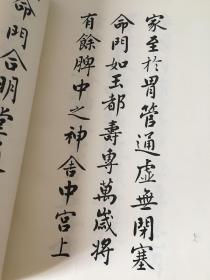 家至於胃管通虛無閉塞
命門如玉都壽專萬歲將
有餘脾中之神舍中宮上
命門合明堂通